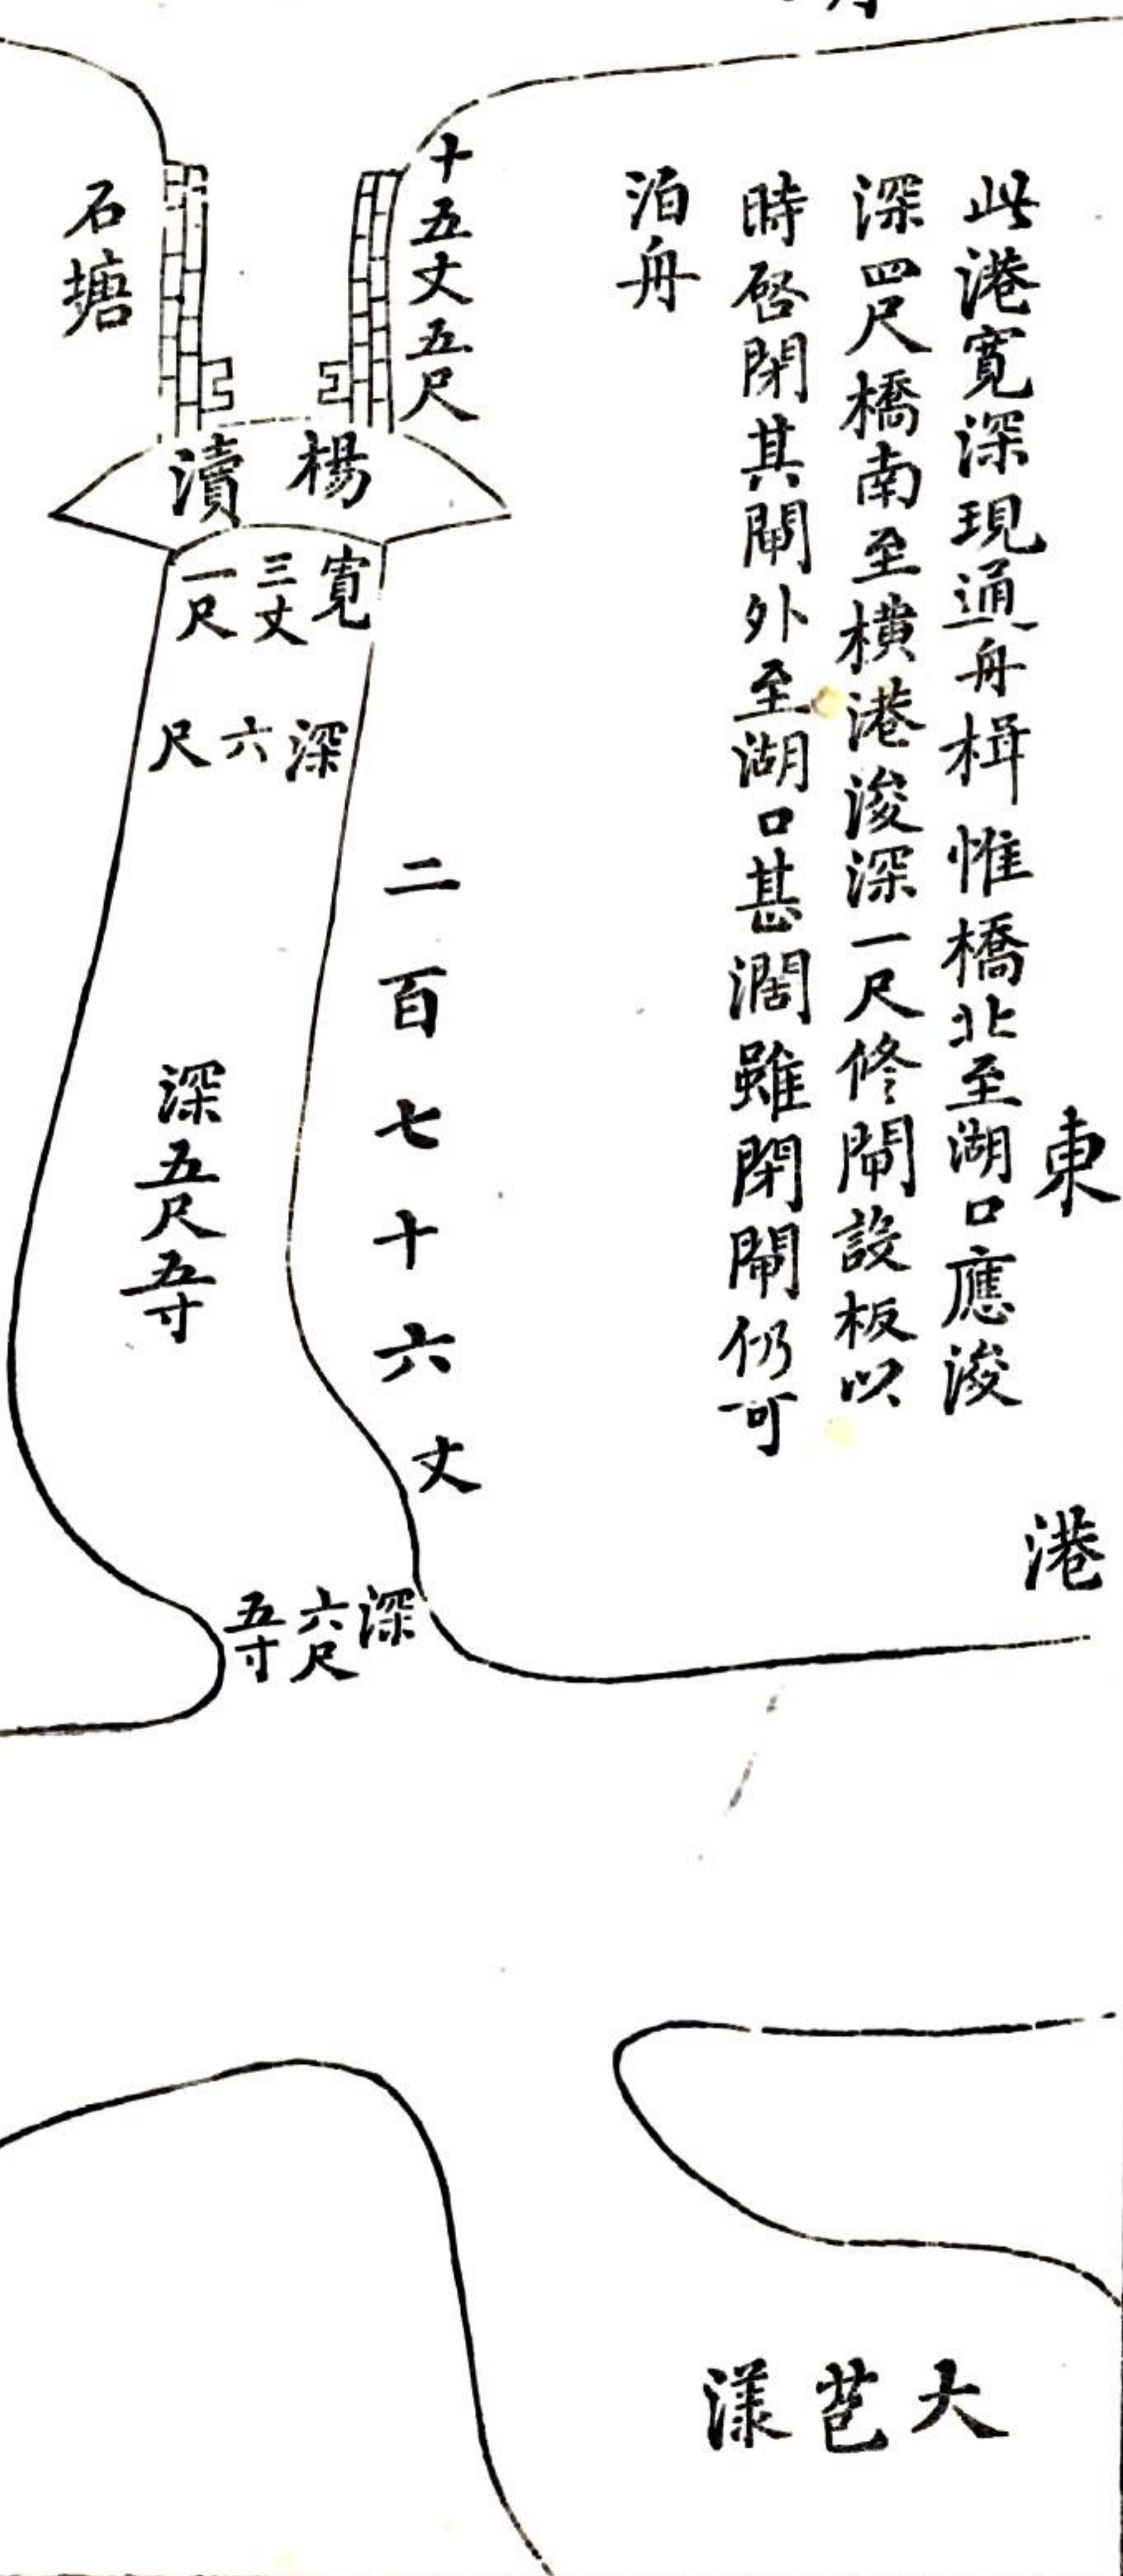 此港寬深現通舟楫惟橋北至湖口應浚
深四尺橋南至橫港浚深一尺修閘設板以
時啓閉其閘外至湖口甚濶雖閉閘仍可
泊舟
東
港
十五丈五尺
石塘
楊瀆
寬三丈一尺
深六尺
二百七十六丈
深五尺五寸
深六尺五寸
大芑漾